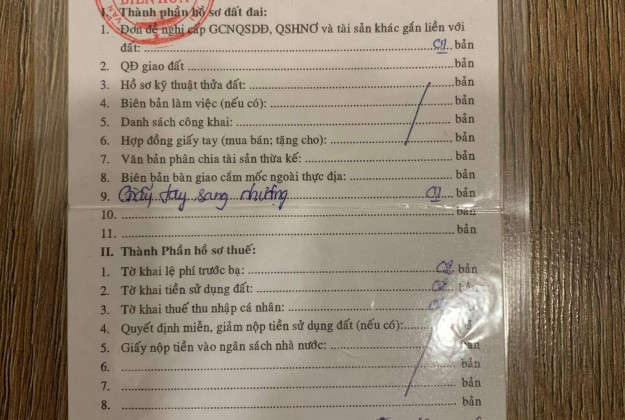 BIÊN HÒA
VĂN
I. Thành phần hồ sơ đất đai:
1. Đơn đề nghị cấp GCNQSDĐ, QSHNƠ và tài sản khác gắn liền với
đất: 01 bản
2. QĐ giao đất bản
3. Hồ sơ kỹ thuật thửa đất: bản
4. Biên bản làm việc (nếu có): bản
5. Danh sách công khai: bản
6. Hợp đồng giấy tay (mua bán; tặng cho): bản
7. Văn bản phân chia tài sản thừa kế: bản
8. Biên bản bàn giao cắm mốc ngoài thực địa: bản
9. Giấy tay sang nhượng 01 bản
10. bản
11. bản
II. Thành Phần hồ sơ thuế:
1. Tờ khai lệ phí trước bạ: 02 bản
2. Tờ khai tiền sử dụng đất: 02 bản
3. Tờ khai thuế thu nhập cá nhân: bản
4. Quyết định miễn, giảm nộp tiền sử dụng đất (nếu có): bản
5. Giấy nộp tiền vào ngân sách nhà nước: bản
6. bản
7. bản
8. bản